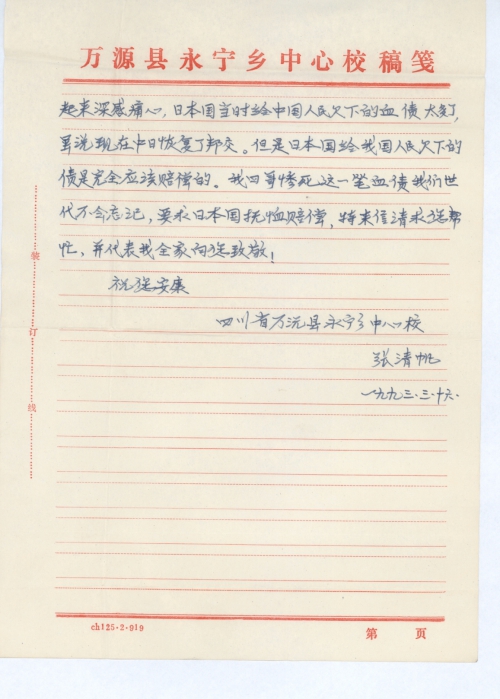 万源县永宁乡中心校稿笺
起来深感痛心，日本国当时给中国人民欠下的血债太多了，
虽说现在中日恢复了邦交。但是日本国给我国人民欠下的
债是完全应该赔偿的。我四哥惨死这一笔血债我们世
代不会忘记，要求日本国抚恤赔偿，特来信请求您帮
忙，并代表我全家向您致敬！
祝您安康
四川省万沅县永宁乡中心校
张清帆
一九九三.三.十六.
装
订
线
ch125·2·919
第 页